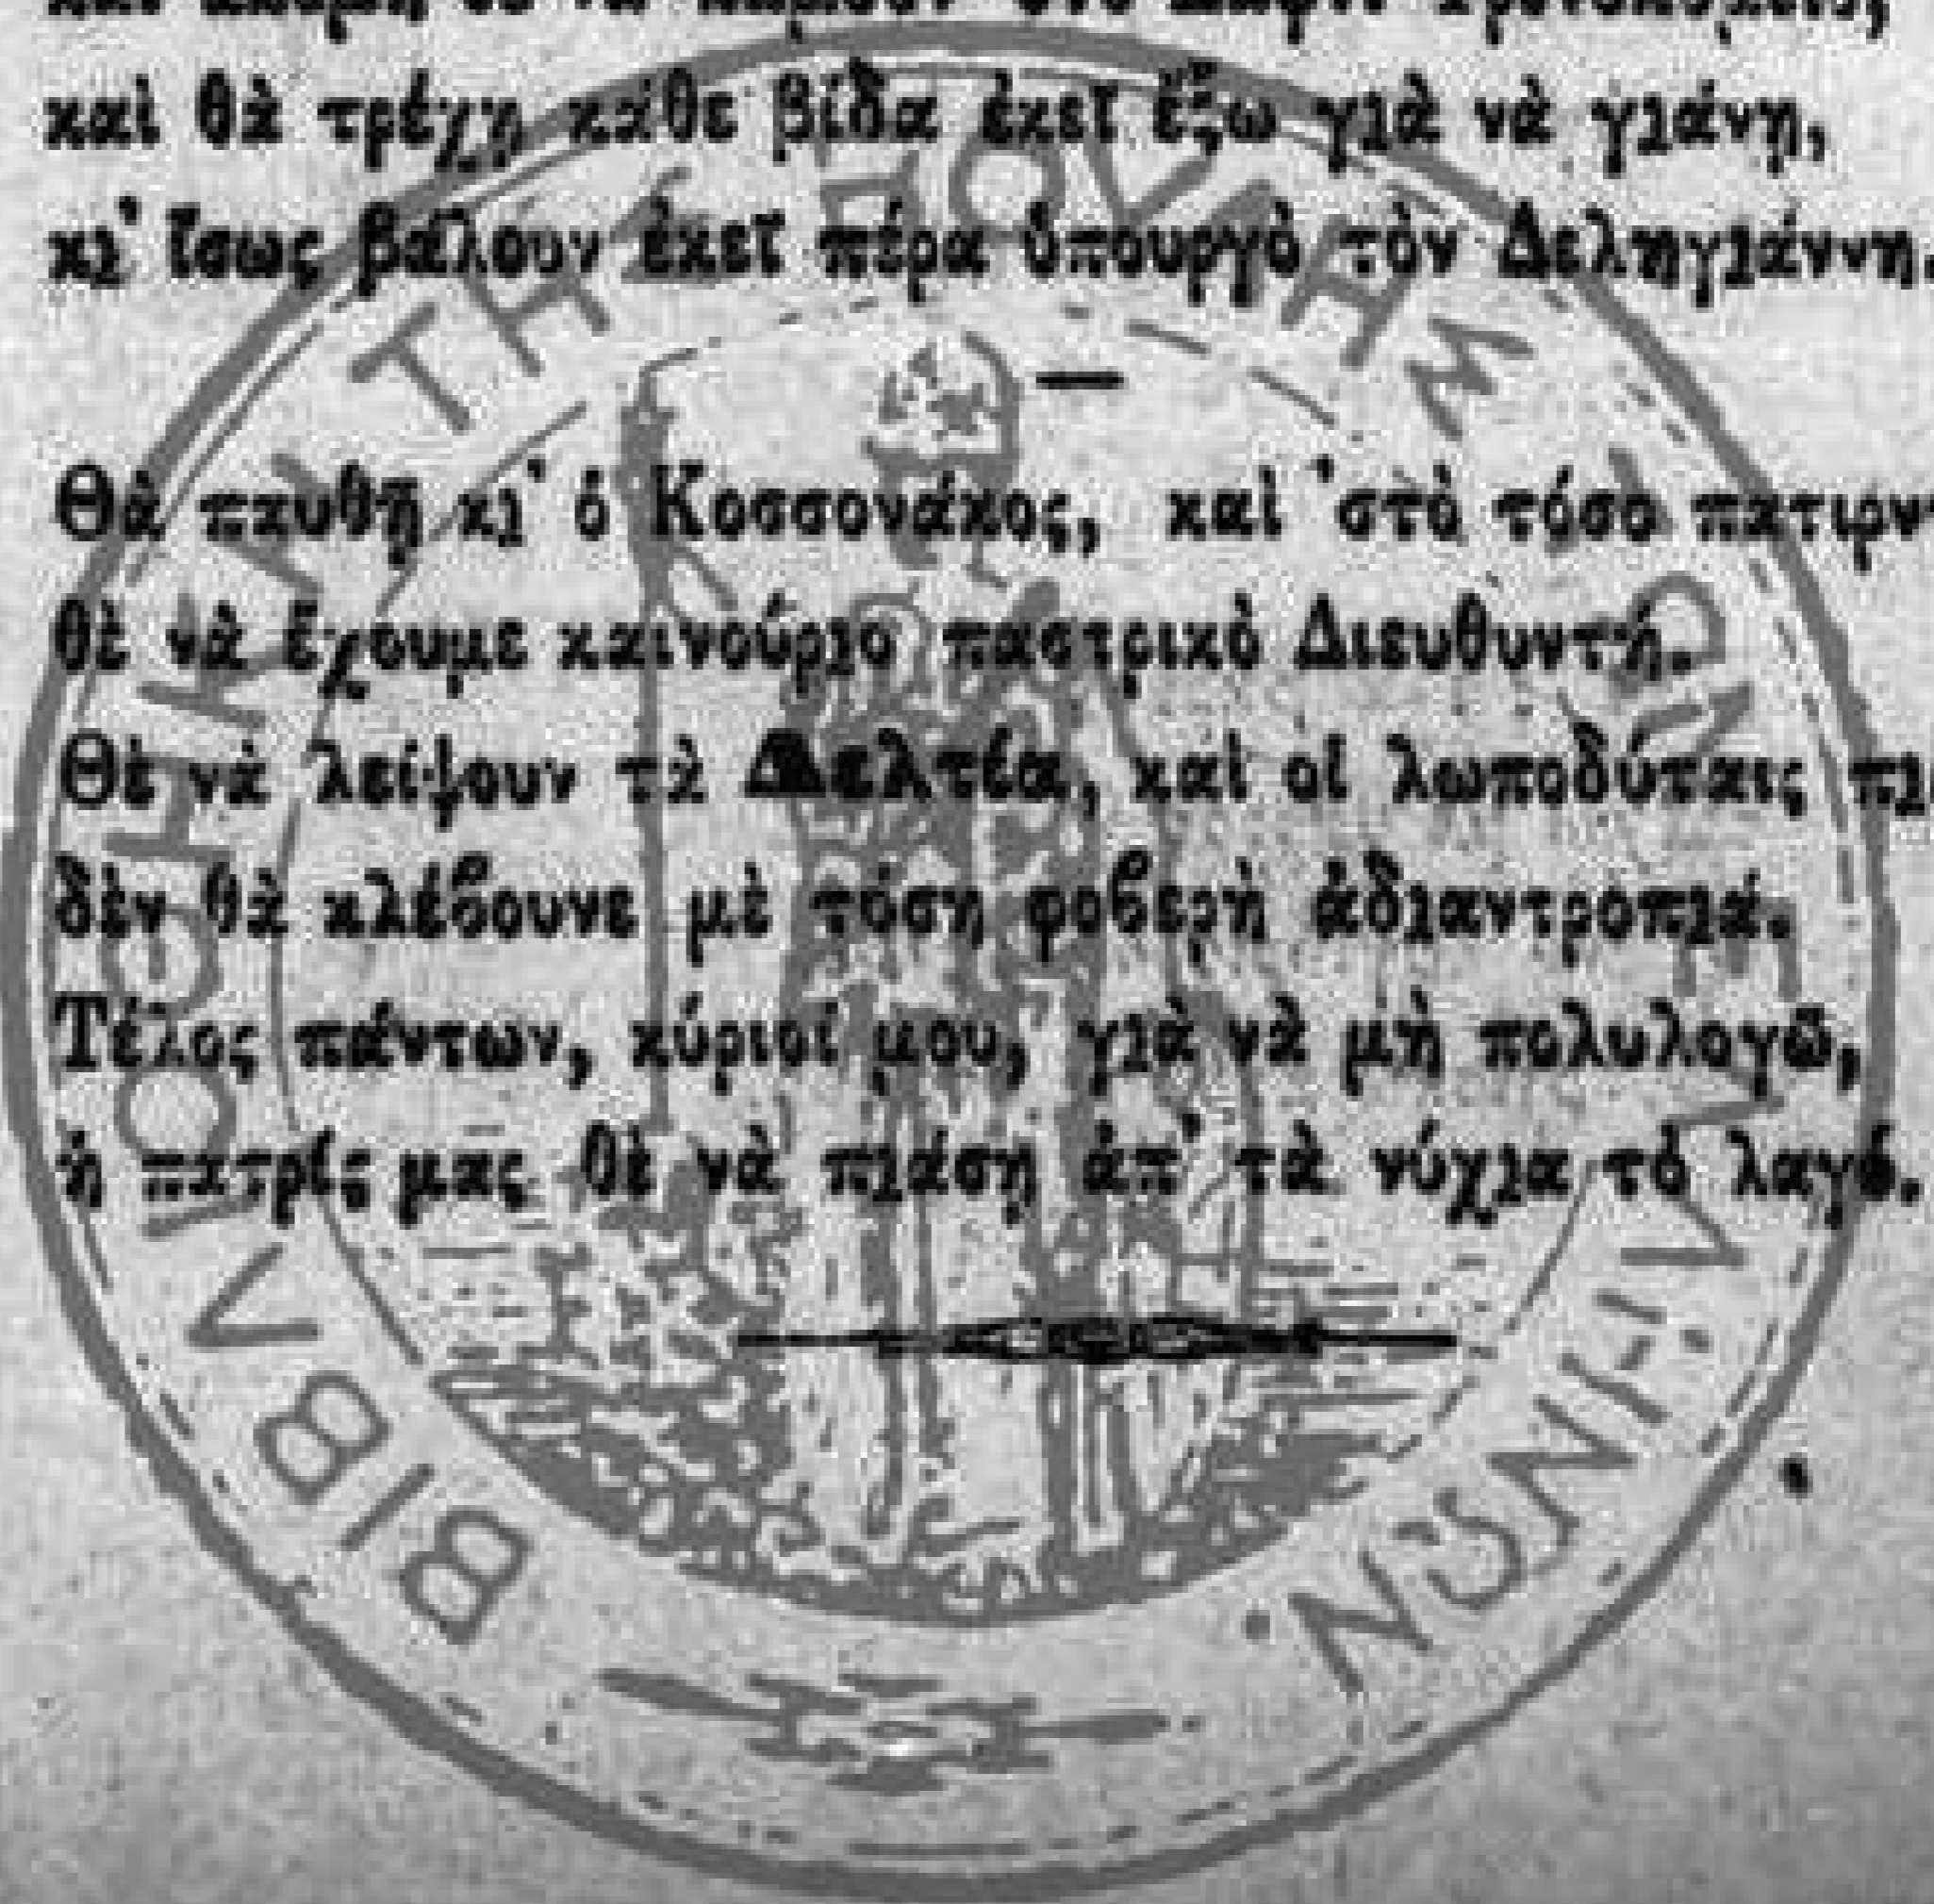 καὶ θὰ τρέχῃ κάθε βίδα ἐκεῖ ἔξω γιὰ νὰ γιάνῃ,
κι' ἴσως βάλουν ἐκεῖ πέρα ὑπουργὸ τὸν Δεληγιάννη.
—
Θὰ παυθῇ κι' ὁ Κοσσονάκος, καὶ 'στὸ τόσο
θὲ νὰ ἔχουμε καινούριο παστρικὸ Διευθυντή.
Θὲ νὰ λείψουν τὰ Δελτία, καὶ οἱ λωποδύταις
δὲν θὰ κλέβουνε μὲ τόση φοβερὴ ἀδιαντροπιά.
Τέλος πάντων, κύριοί μου, γιὰ νὰ μὴ πολυλογῶ,
ἡ πατρίς μας θὲ νὰ πιάσῃ ἀπ' τὰ νύχια τὸ λαγό.
ΒΙΒΛΙΟΘΗΚΗ ΤΗΣ ΒΟΥΛΗΣ ΤΩΝ ΕΛΛΗΝΩΝ